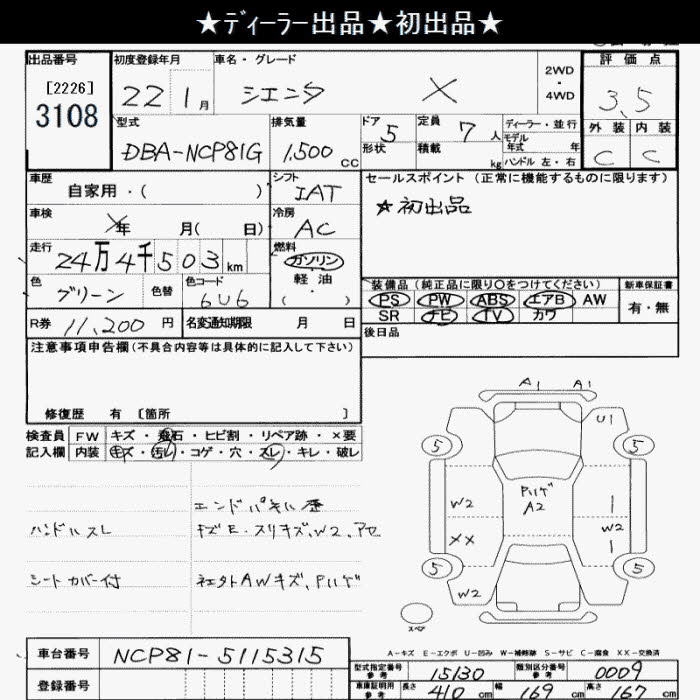 ★ディーラー出品★初出品★
出品番号 初度登録年月 車名・グレード 2WD・4WD 評価点
[2226]
3108 22 1月 シエンタ X 3.5
外装 内装
C C
型式 排気量 ドア 定員 ディーラー・並行
DBA-NCP81G 1,500 CC 5 7人
形状 積載 kg モデル年式 年
ハンドル 左・右
車歴 シフト セールスポイント(正常に機能するものに限ります)
自家用・( ) IAT ★初出品
車検 冷房
年 月( 日) AC
走行 燃料
24万4千503km ガソリン
軽油
( )
色 色替 色コード 装備品(純正品に限り○をつけてください) 新車保証書
グリーン 6U6 PS PW ABS エアB AW 有・無
SR ナビ TV カワ
R券 11,200円 名変通知期限 月 日 後日品
注意事項申告欄(不具合内容等は具体的に記入して下さい)
修復歴 有 [箇所 ]
検査員 FW キズ・飛石・ヒビ割・リペア跡・×要
記入欄 内装 キズ・汚レ・コゲ・穴・スレ・キレ・破レ
ハンドルスレ
シートカバー付
キズE・スリキズ、W2、アセ
AWキズ、Pハゲ
A1 A1
U1
5 5
Pハゲ
A2
W2 W2
XX
5 5
W2
スペア
A-キズ E-エクボ U-凹み W-補修跡 S-サビ C-腐食 XX-交換済
車台番号 NCP81-5115315
登録番号
型式指定番号 参考 15130 類別区分番号 参考 0009
車庫証明用 参考 長さ 410 cm 幅 169 cm 高さ 167 cm